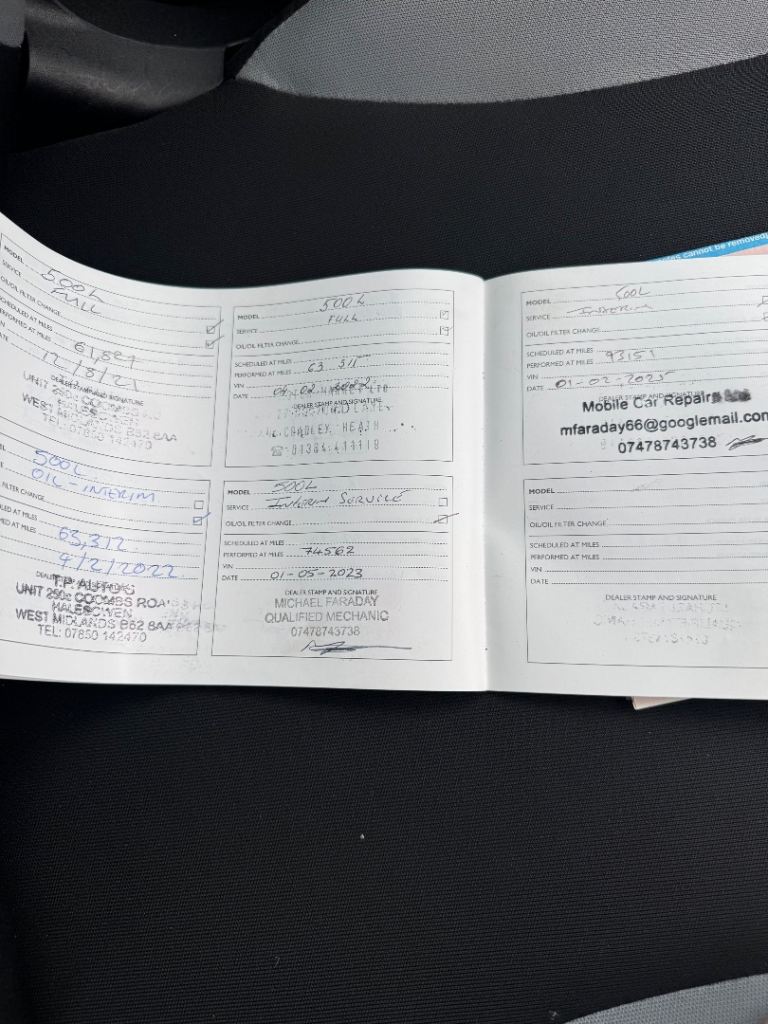 es cannot be removed)
MODEL 500L
SERVICE FULL
OIL/OIL FILTER CHANGE
SCHEDULED AT MILES
PERFORMED AT MILES 61,887
DATE 12/8/21
DEALER STAMP AND SIGNATURE
WEST MIDLANDS B62 8AA
TEL: 07850 142470
500L
OIL - INTERIM
FILTER CHANGE
LED AT MILES
MED AT MILES 63,312
9/2/2022
T.P. AUTOS
UNIT 250c COOMBS ROA
HALESOWEN
WEST MIDLANDS B62 8AA
TEL: 07850 142470
MODEL 500L
SERVICE FULL
OIL/OIL FILTER CHANGE
SCHEDULED AT MILES
PERFORMED AT MILES 63 311
VIN
DATE
DEALER STAMP AND SIGNATURE
CRADLEY HEATH
MODEL 500L
SERVICE INTERIM SERVICE
OIL/OIL FILTER CHANGE
SCHEDULED AT MILES
PERFORMED AT MILES 74562
VIN
DATE 01-05-2023
DEALER STAMP AND SIGNATURE
MICHAEL FARADAY
QUALIFIED MECHANIC
07478743738
MODEL 500L
SERVICE INTERIM
OIL/OIL FILTER CHANGE
SCHEDULED AT MILES
PERFORMED AT MILES 93151
VIN
DATE 01-02-2025
DEALER STAMP AND SIGNATURE
Mobile Car Repairs
mfaraday66@googlemail.com
07478743738
MODEL
SERVICE
OIL/OIL FILTER CHANGE
SCHEDULED AT MILES
PERFORMED AT MILES
VIN
DATE
DEALER STAMP AND SIGNATURE